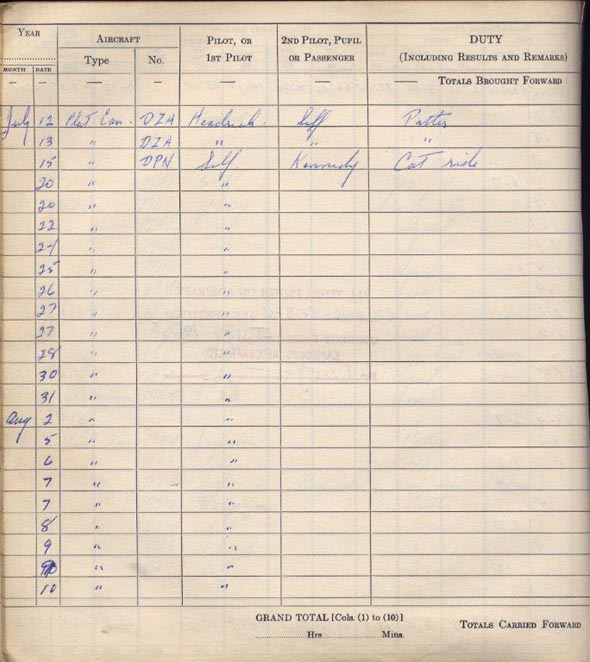 YEAR AIRCRAFT PILOT, OR 1ST PILOT 2ND PILOT, PUPIL OR PASSENGER DUTY (INCLUDING RESULTS AND REMARKS)
MONTH DATE Type No.
— — — — — — — TOTALS BROUGHT FORWARD
July 12 DZA Self Patter
13 " DZA " " "
15 " DPN Self Kennedy Cat ride.
20 " "
20 " "
22 " "
24 " "
25 " "
26 " "
27 " "
27 " "
28 " "
30 " "
31 " "
Aug 2 " "
5 " "
6 " "
7 " "
7 " "
8 " "
9 " "
" "
10 " "
GRAND TOTAL [Cols. (1) to (10)] TOTALS CARRIED FORWARD
Hrs. Mins.